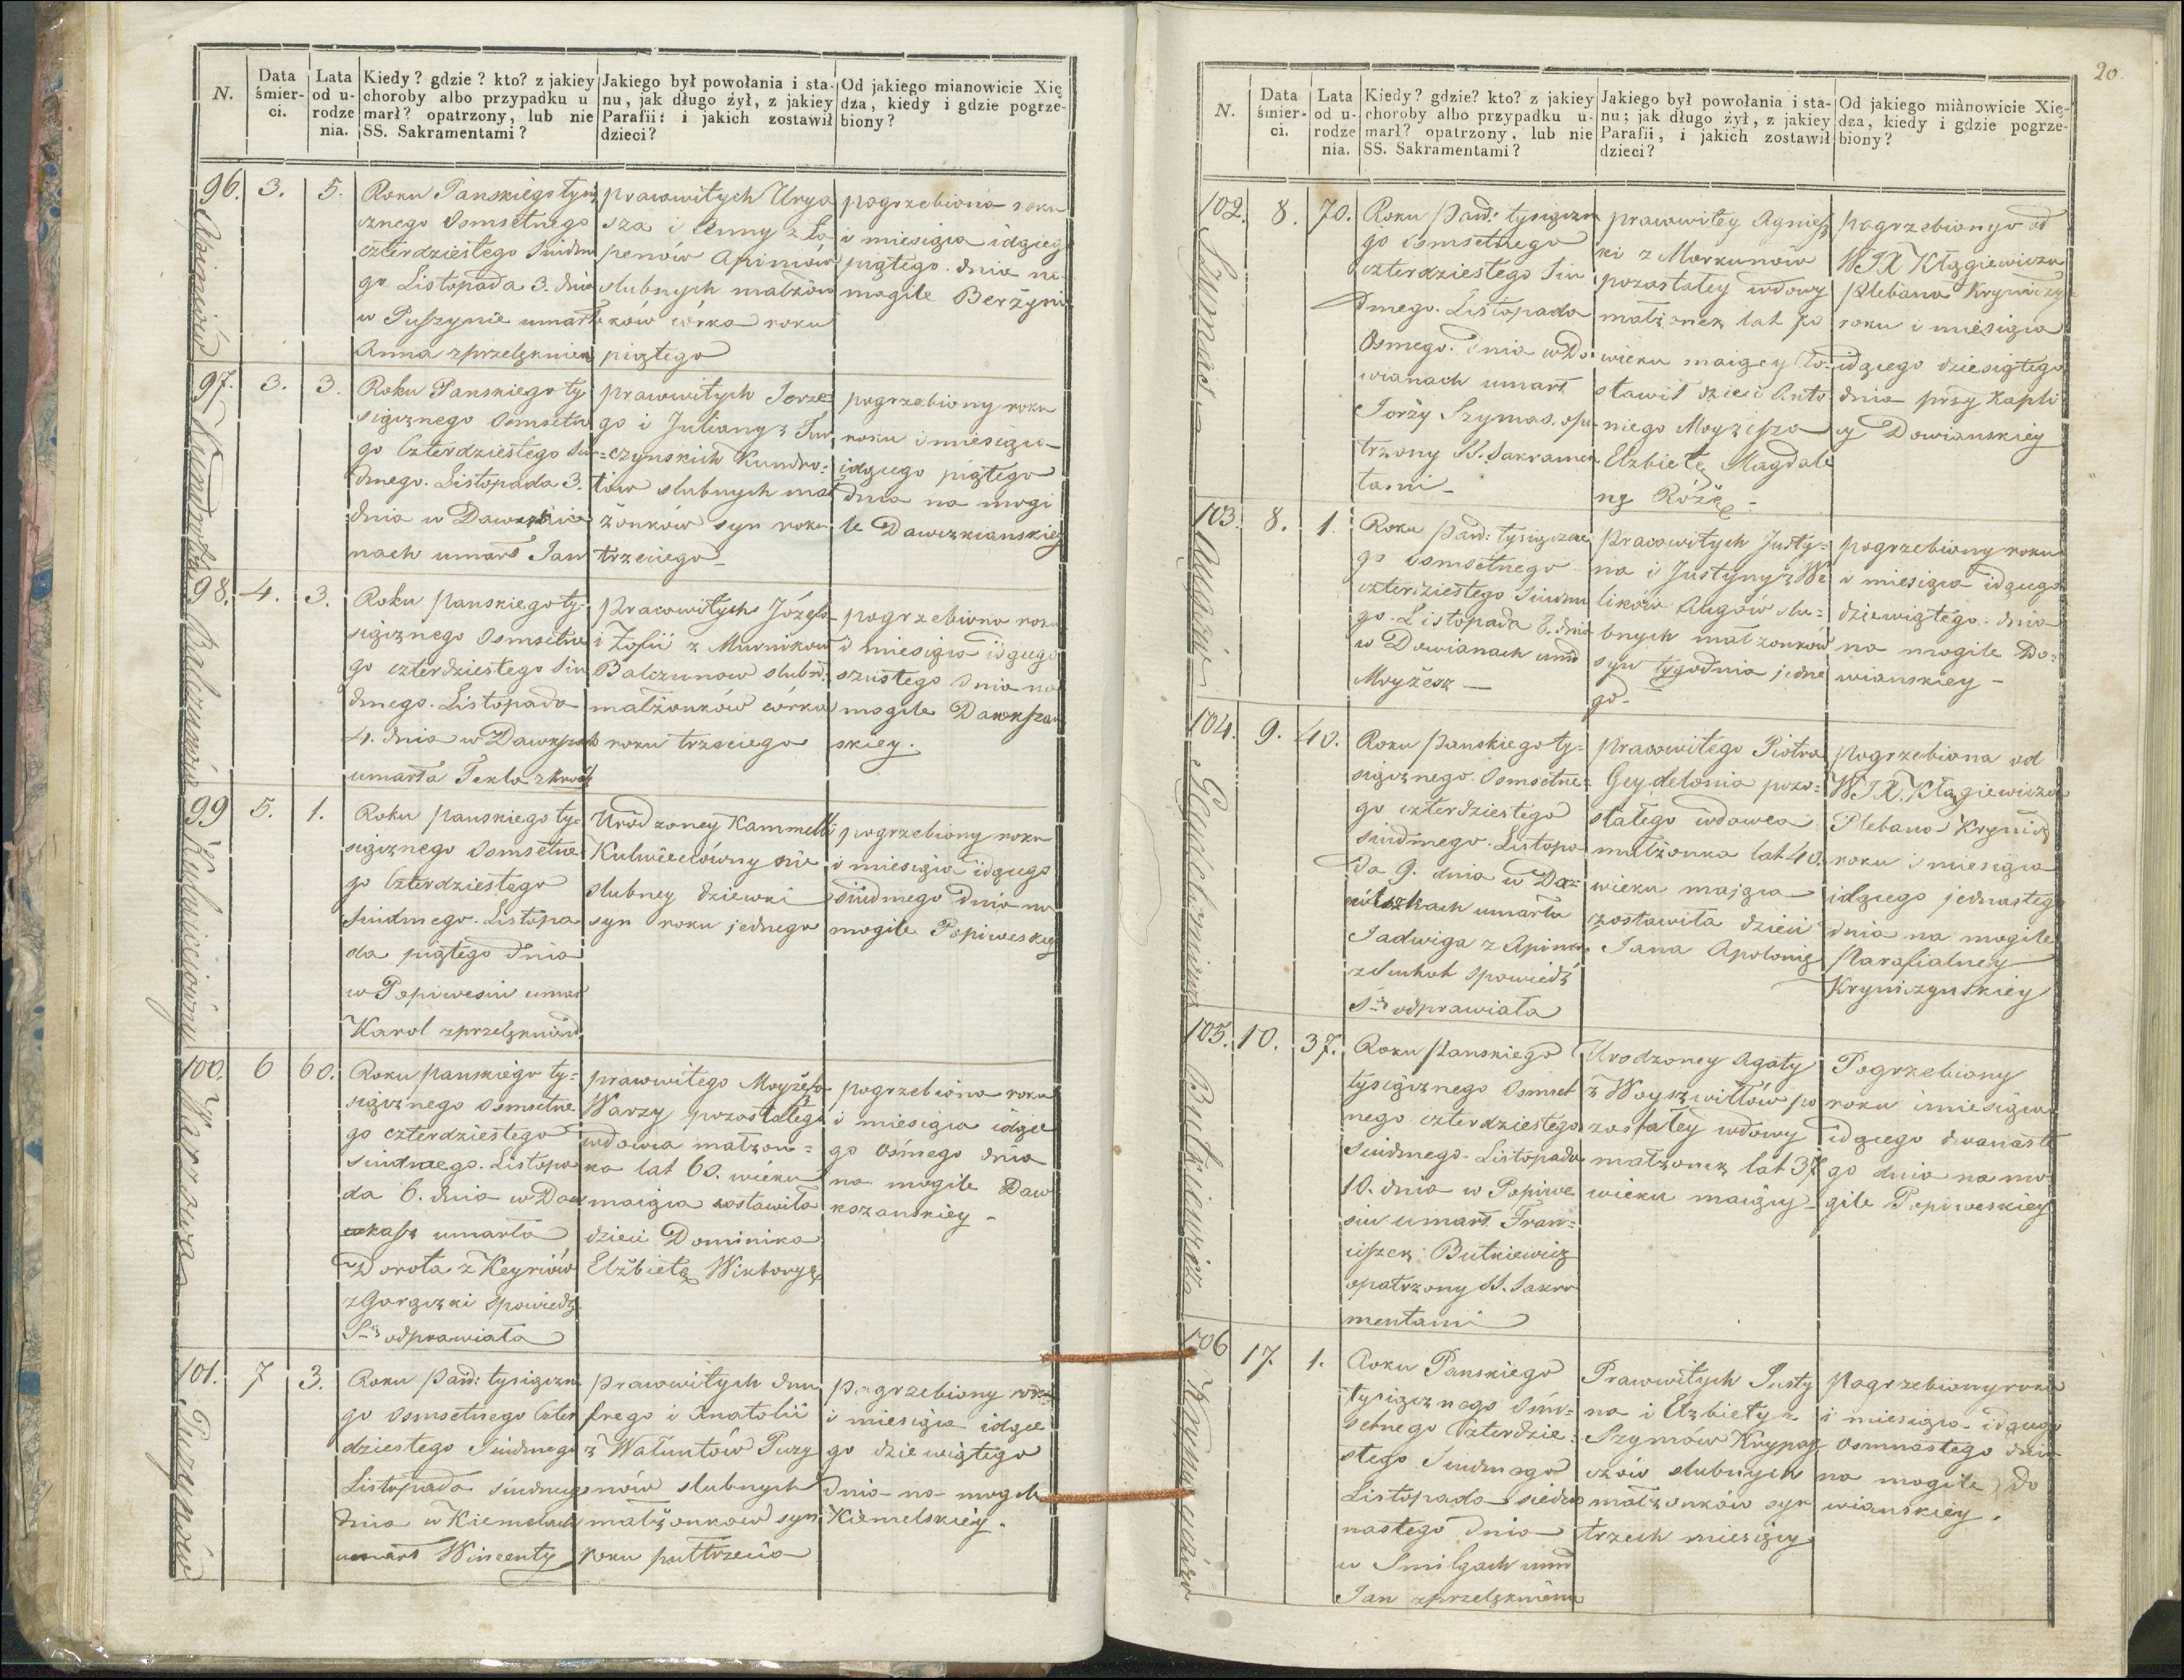 N.
Data śmierci.
Lata od urodzenia.
Kiedy? gdzie? kto? z jakiey
choroby albo przypadku u
marł? opatrzony, lub nie
SS. Sakramentami?
Jakiego był powołania i sta-
nu, jak długo żył, z jakiey
Parafii: i jakich zostawił
dzieci?
Od jakiego mianowicie Xię
dza, kiedy i gdzie pogrze-
biony?
96. 3. 5.
Apiniów
Roku Panskiego tysią
cznego Osmsetnego
czterdziestego siudme
go Listopada 3. dnia
w Puszynie umarła
Anna z przelęknien
prawowitych Urya
sza i Anny z Ła
penów Apiniów
slubnych małżon
ków córka roku
piątego
pogrzebiona roku
i miesiąca idącego
piątego dnia na
mogile Berżyni
97. 3. 3.
Kundrotów
Roku Panskiego ty
siącznego Osmsetne
go Czterdziestego siu
dmego. Listopada 3.
dnia w
nach umarł Jan
prawowitych Jerze
go i Julianny z Jur
czynskich Kundro-
tów slubnych mał
żonków syn roku
trzeciego
pogrzebiony roku
roku i miesiąca
idącego piątego
dnia na mogi
le Dawczkianskiey
98. 4. 3.
Balczunów
Roku panskiego ty-
siącznego Osmsetne
go czterdziestego siu
dmego. Listopada
4. dnia w
umarła Tekla z
prawowitych Józefa
i Zofii z Murnikow
Balczunow slubn.
małżonków córka
roku trzeciego
pogrzebiona roku
i miesiąca idącego
szustego dnia na
mogile Dawkszan
skiey.
99 5. 1.
Kulwieciówny
Roku panskiego ty-
siącznego Osmsetne
go Czterdziestego
siudmego. Listopa
da piątego dnia
w Popiwesiu umar
Karol z przelęknien
Urodzoney Kammelli
Kulwiecówny nie
slubney dziewki
syn roku jednego
pogrzebiony roku
i miesiąca idącego
siudmego dnia na
mogile Popiweskiey
100. 6 60.
Warzowa
Roku panskiego ty-
siącznego Osmsetne
go czterdziestego
siudmego. Listopa
da 6. dnia w Daw
kasz umarła
Dorota z Keyriów
z Gorączki spowiedz
S-tą odprawiała
prawowitego Moyżesza
Warzy pozostałego
wdowca małżon-
ka lat 60. wieku
maiąca zostawiła
dzieci Dominika
Elżbietę Wiktoryą
pogrzebiona roku
i miesiąca idące
go osmego dnia
na mogile Daw
kszanskiey -
101. 7 3.
Puzynów
Roku Pań: tysiączne
go Osmsetnego Czter
dziestego Siudmego
Listopada siudmego
dnia w Kiemelach
umarł Wincenty
prawowitych Onu
frego i Anatolii
z Wałuntów Puzy
nów slubnych
małżonkow syn
roku pułtrzecia
pogrzebiony roku
i miesiąca idące
go dziewiątego
dnia na mogile
Kiemelskiey.
20.
N.
Data śmierci.
Lata od urodzenia.
Kiedy? gdzie? kto? z jakiey
choroby albo przypadku u-
marł? opatrzony, lub nie
SS. Sakramentami?
Jakiego był powołania i sta-
nu; jak długo żył, z jakiey
Parafii, i jakich zostawił
dzieci?
Od jakiego mianowicie Xię-
dza, kiedy i gdzie pogrze-
biony?
102. 8. 70.
Szymasa
Roku Pań: tysiączne
go osmsetnego
czterdziestego Siu
dmego. Listopada
Osmego. dnia w Do-
wianach umarł
Jorży Szymas. opa-
trzony SS. Sakramen
tami -
prawowitey Agniesz
ki z Morkunów
pozostałey wdowy
małżonek lat 70
wieku maiący zo-
stawił dzieci Anto
niego Moyżesza
Elżbietę Magdale
nę Różę -
pogrzebiony od
WJX Kłągiewicza
Plebana Krynicz
roku i miesiąca
idącego dziesiątego
dnia przy Kapli
cy Dowianskiey
103. 8. 1.
Augów
Roku Pań: tysiączne
go osmsetnego
czterdziestego siudme
go. Listopada 8. dnia
w Dowianach umar
Moyżesz -
Prawowitych Justy-
na i Justyny z We
lików Augów slu-
bnych małżonków
syn tygodnia jedne
go -
pogrzebiony roku
i miesiąca idącego
dziewiątego. dnia
na mogile Do-
wianskiey -
104. 9. 40.
Roku Panskiego ty-
siącznego. Osmsetne
go czterdziestego
siudmego. Listopa
da 9. dnia w Da-
wilszkach umarła
Jadwiga z Apiniów
z Suchot spowiedź
S-tą odprawiała
Prawowitego Piotra
Geydelonia pozo-
stałego wdowca
małżonka lat 40.
wieku mająca
zostawiła dzieci
Jana Apolonię
pogrzebiona od
WJX. Kłągiewicza
Plebana Krynicz
roku i miesiąca
idącego jednastego
dnia na mogile
Parafialney
Kryniczynskiey
105. 10. 37.
Butkiewicza
Roku Panskiego
tysiącznego Osmset
nego czterdziestego
siudmego. Listopada
10. dnia w Popiwe
siu umarł Fran-
ciszek Butkiewicz
opatrzony SS. Sakra
mentami
Urodzoney Agaty
z Woyszwiłłów po
zostałey wdowy
małżonek lat 37
wieku maiący -
Pogrzebiony
roku i miesiąca
idącego dwanaste
go dnia na mo
gile Popiweskiey
106 17. 1.
Roku Panskiego
tysiącznego Osm-
setnego Czterdzie-
stego siudmego
Listopada siedm
nastego dnia
w Smilgach umar
Jan z przelęknienia
Prawowitych Justy
na i Elżbiety z
Szymów Krypay
czów slubnych
małżonków syn
trzech miesięcy
Pogrzebiony roku
i miesiąca idącego
osmnastego dnia
na mogile Do
wianskiey.